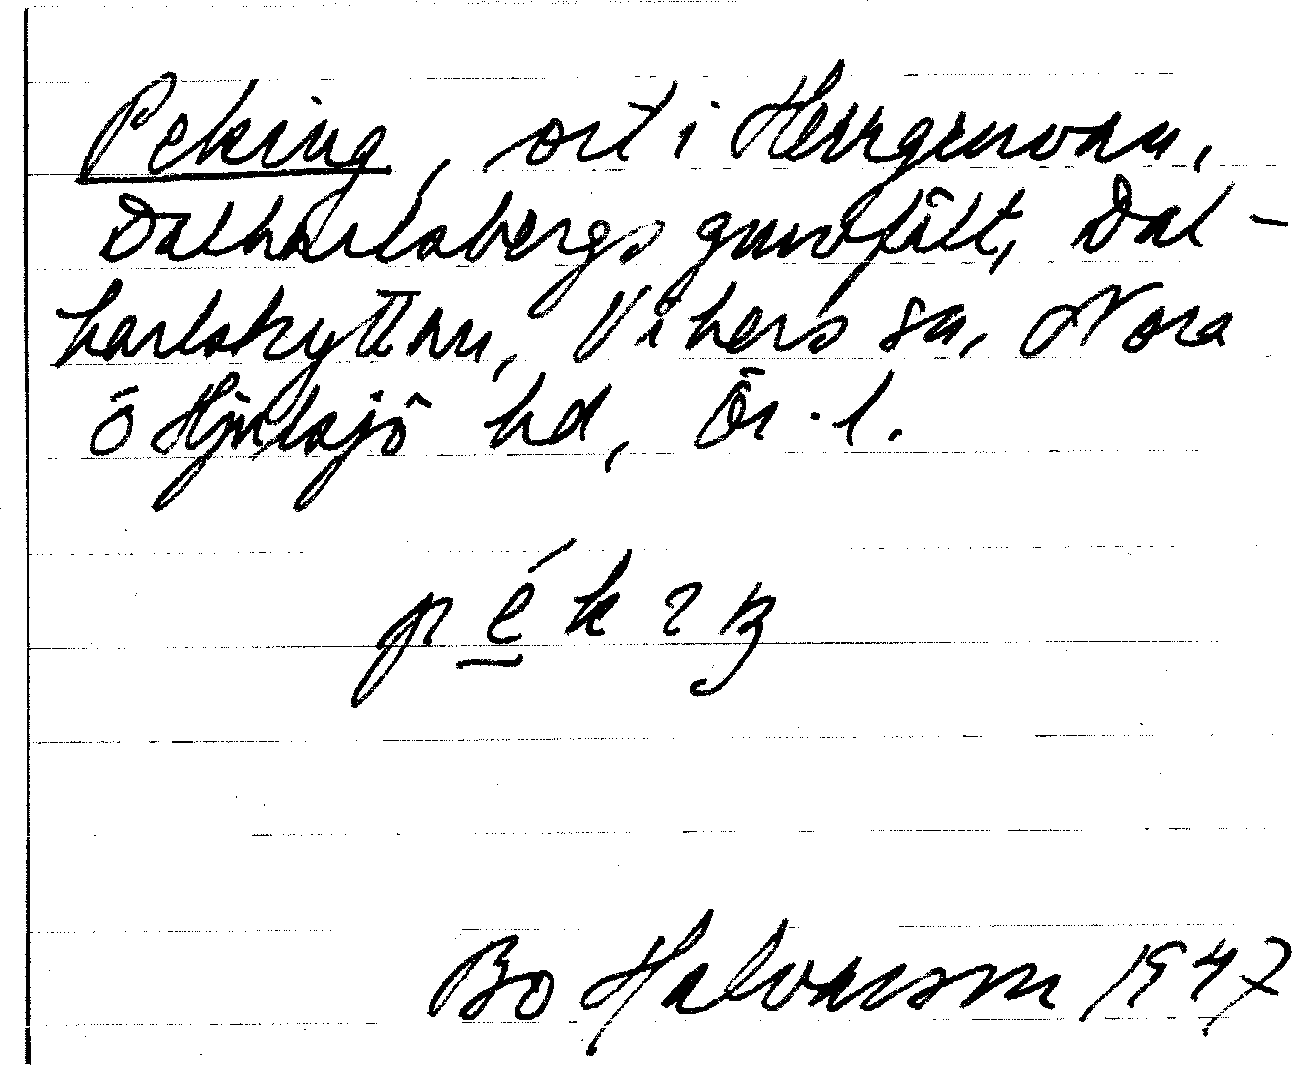 Peking, ort i Herrgruvan,
Dalkarlsbergs gruvfält, Dal-
karlshyttan, Vikers sn, Nora
o Hjulsjö hd, Ör. l.
pékıŋ
Bo Halvarson 1947